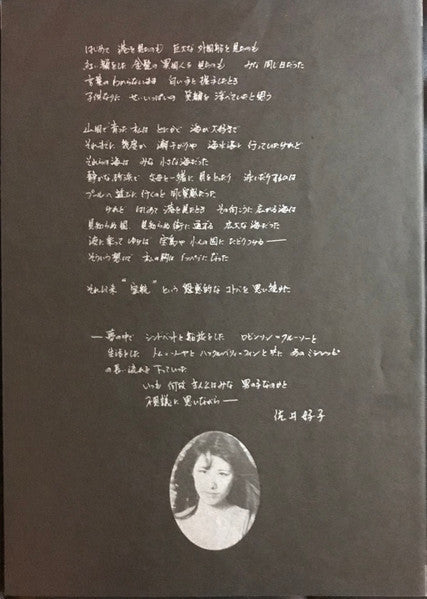 はじめて 港を見たのも 巨大な外国船を見たのも
紅い顔をした 金髪の異国人を見たのも みな同じ日だった
言葉のわからないまま 白い手と握手したとき
子供なりに せいいっぱいの 笑顔を 浮べていたと思う
山国で育った私は とにかく 海が大好きで
それまでに 幾度か 潮干がりや 海水浴に 行っていたけれど
それらの海は みな 小さな海だった
静かな砂浜で 父母と一緒に 貝をとったり 泳いだりするのは
プールへ 遊びに行くのと 同じ気軽だった
けれど はじめて 港を見たとき その向こうに広がる海は
見知らぬ国 見知らぬ街に通ずる 広大な海だった
波に乗って ゆけば 宝島や 小人の国に たどりつける——
そういう想いで 私の胸は いっぱいになった
それ以来 “密航” という 魅惑的な コトバを 思い続けた
——夢の中で シンドバットと船旅をした ロビンソン・クルーソーと
生活をした トム・ソーヤと ハックルベリィ・フィンと共に あのミシシッピ
の長い流れを 下っていた
いつも 何故 主人公はみな 男の子なのかと
不思議に 思いながら——
佐井好子